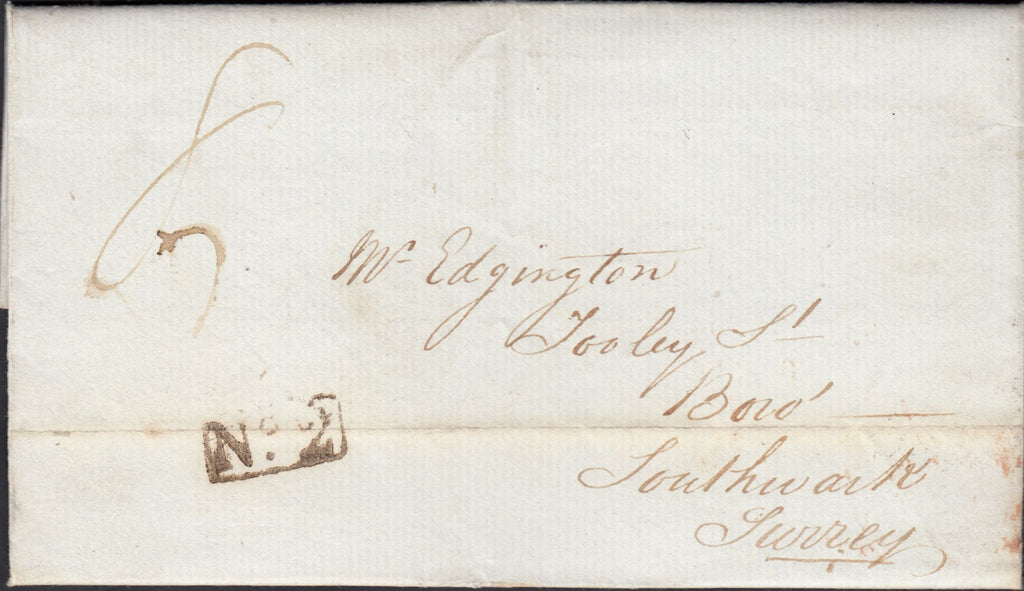 Mr Edgington
Tooley St
Boro'
Southwark
Surrey
No. 2